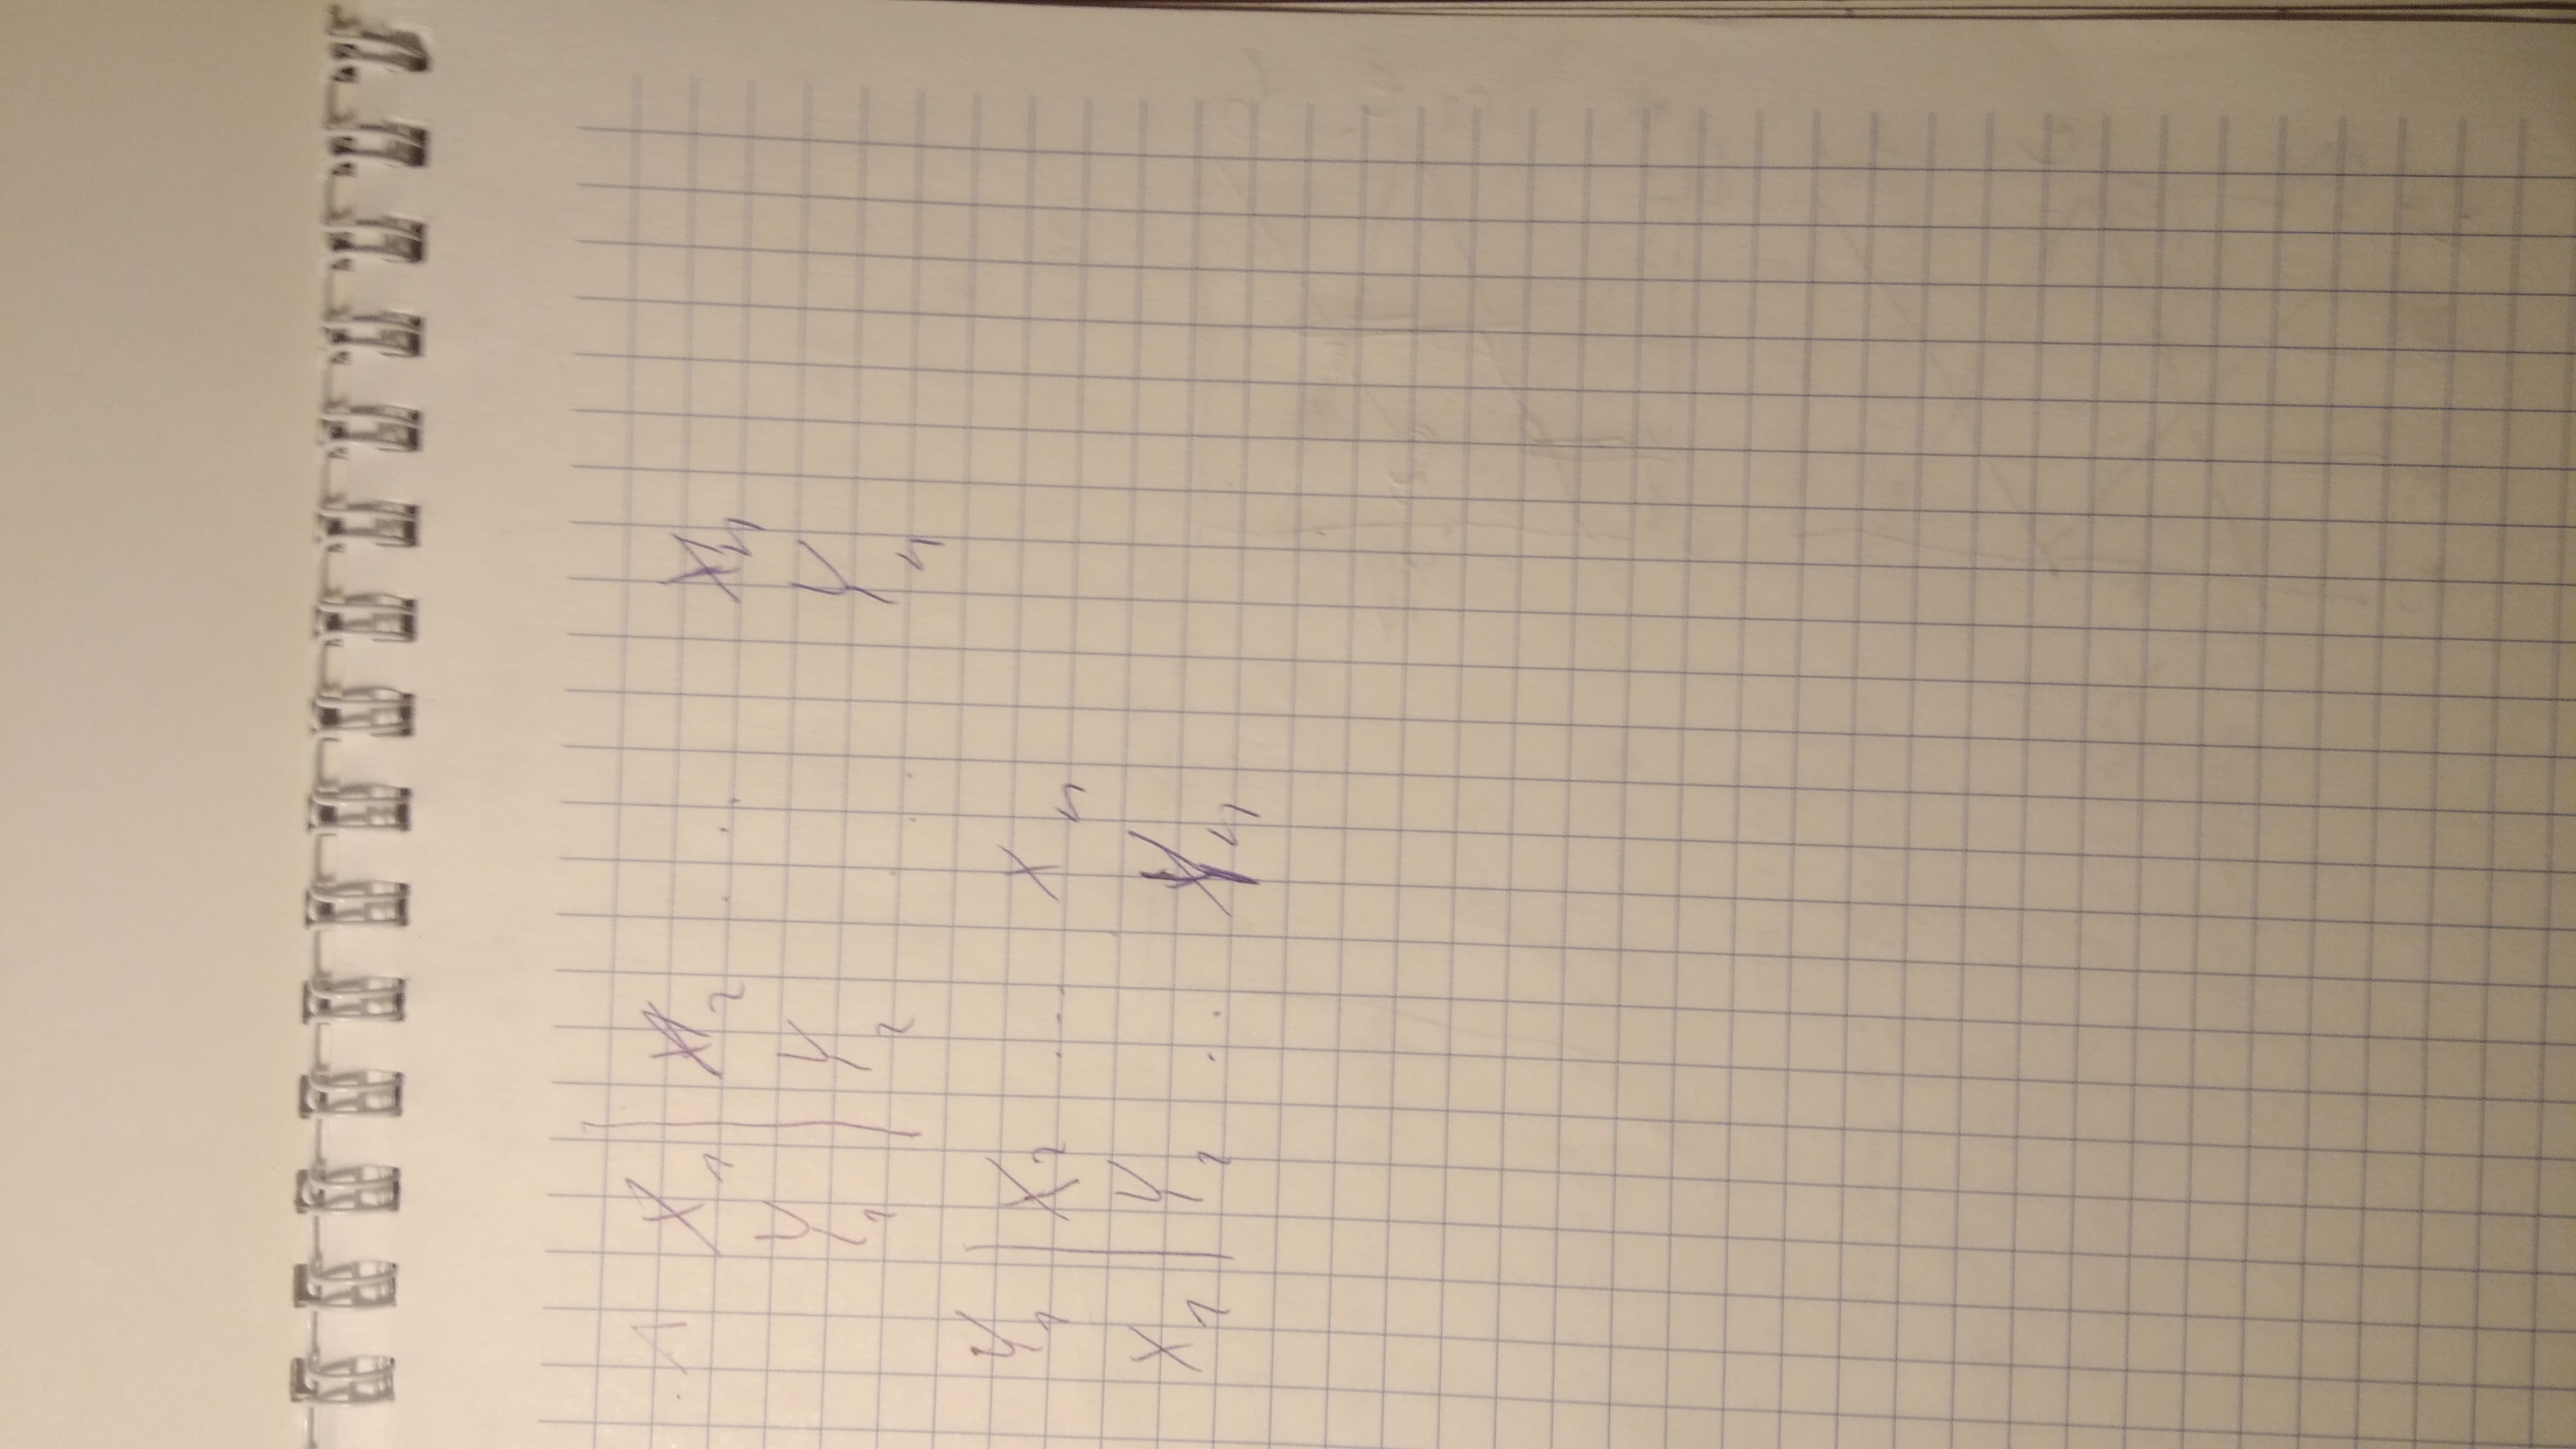 X₁ | X₂ .... Xₙ
Y₁ | Y₂ ... Yₙ
Y₁ | X₂ .... Xₙ
X₁ | Y₂ ... Yₙ